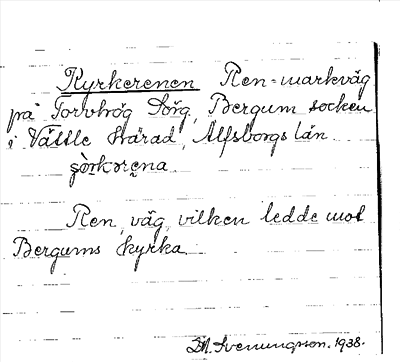 Kyrkerenen Ren = markväg
på Torvhög Sörg, Bergum socken
i Vättle Härad, Älfsborgs län
Ren, väg, vilken ledde mot
Bergums kyrka.
M. Svenungsson. 1938.